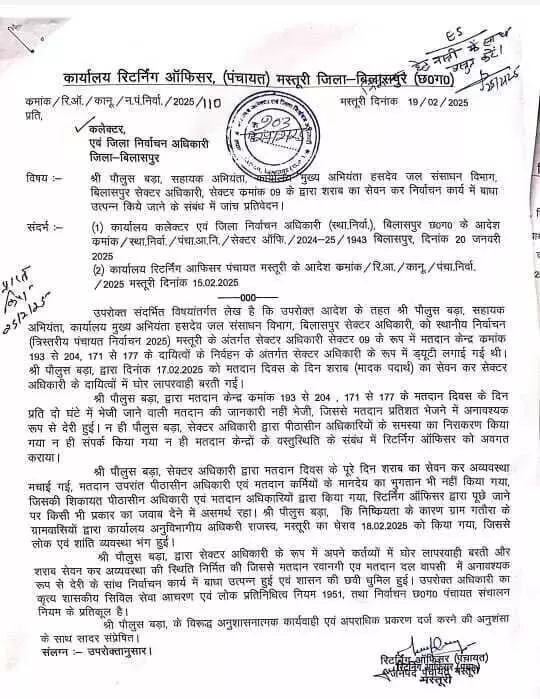 ES
कार्यालय रिटर्निंग ऑफिसर, (पंचायत) मस्तूरी जिला–बिलासपुर (छ०ग०)
कमांक / रि.ऑ. / कानू / न.पं.निर्वा. / 2025 / 110 मस्तूरी दिनांक 19 / 02 / 2025
प्रति,
कलेक्टर,
एवं जिला निर्वाचन अधिकारी
जिला–बिलासपुर
विषय :– श्री पौलुस बड़ा, सहायक अभियंता, कार्यालय मुख्य अभियंता हसदेव जल संसाधन विभाग,
बिलासपुर सेक्टर अधिकारी, सेक्टर कमांक 09 के द्वारा शराब का सेवन कर निर्वाचन कार्य में बाधा
उत्पन्न किये जाने के संबंध में जांच प्रतिवेदन।
संदर्भ :– (1) कार्यालय कलेक्टर एवं जिला निर्वाचन अधिकारी (स्था.निर्वा.), बिलासपुर छ०ग० के आदेश
कमांक / स्था.निर्वा. / पंचा.आ.नि. / सेक्टर ऑफि. / 2024–25 / 1943 बिलासपुर, दिनांक 20 जनवरी
2025
(2) कार्यालय रिटर्निंग आफिसर पंचायत मस्तूरी के आदेश कमांक / रि.आ. / कानू / पंचा.निर्वा.
/ 2025 मस्तूरी दिनांक 15.02.2025
——000——
उपरोक्त संदर्भित विषयांतर्गत लेख है कि उपरोक्त आदेश के तहत श्री पौलुस बड़ा, सहायक
अभियंता, कार्यालय मुख्य अभियंता हसदेव जल संसाधन विभाग, बिलासपुर सेक्टर अधिकारी, को स्थानीय निर्वाचन
(त्रिस्तरीय पंचायत निर्वाचन 2025) मस्तूरी के अंतर्गत सेक्टर अधिकारी सेक्टर 09 के रूप में मतदान केन्द्र कमांक
193 से 204, 171 से 177 के दायित्वों के निर्वहन के अंतर्गत सेक्टर अधिकारी के रूप में ड्यूटी लगाई गई थी।
श्री पौलुस बड़ा, द्वारा दिनांक 17.02.2025 को मतदान के दिन शराब (मादक पदार्थ) का सेवन कर सेक्टर
अधिकारी के दायित्वों में घोर लापरवाही बरती गई।
श्री पौलुस बड़ा, द्वारा मतदान केन्द्र कमांक 193 से 204 , 171 से 177 के मतदान दिवस के दिन
प्रति दो घंटे में भेजी जाने वाली मतदान की जानकारी नहीं भेजी, जिससे मतदान प्रतिशत भेजने में अनावश्यक
रूप से देरी हुई। न ही पौलुस बड़ा, सेक्टर अधिकारी द्वारा पीठासीन अधिकारियों के समस्या का निराकरण किया
गया न ही संपर्क किया गया न ही मतदान केन्द्रों के वस्तुस्थिति के संबंध में रिटर्निंग ऑफिसर को अवगत
कराया।
श्री पौलुस बड़ा, सेक्टर अधिकारी द्वारा मतदान दिवस के पूरे दिन शराब का सेवन कर अव्यवस्था
मचाई गई, मतदान उपरांत पीठासीन अधिकारी एवं मतदान कर्मियों के मानदेय का भुगतान भी नहीं किया गया,
जिसकी शिकायत पीठासीन अधिकारी एवं मतदान अधिकारियों द्वारा किया गया, रिटर्निंग ऑफिसर द्वारा पूछे जाने
पर किसी भी प्रकार का जवाब देने में असमर्थ रहा। श्री पौलुस बड़ा, कि निष्क्रियता के कारण ग्राम गतौरा के
ग्रामवासियों द्वारा कार्यालय अनुविभागीय अधिकरी राजस्व, मस्तूरी का घेराव 18.02.2025 को किया गया, जिससे
लोक एवं शांति व्यवस्था भंग हुई।
श्री पौलुस बड़ा, द्वारा सेक्टर अधिकारी के रूप में अपने कर्तव्यों में घोर लापरवाही बरती और
शराब सेवन कर अव्यवस्था की स्थिति निर्मित की जिससे मतदान रवानगी एवं मतदान दल वापसी में अनावश्यक
रूप से देरी के सांथ निर्वाचन कार्य में बाधा उत्पन्न हुई एवं शासन की छवी धुमिल हुई। उपरोक्त अधिकारी का
कृत्य शासकीय सिविल सेवा आचरण एवं लोक प्रतिनिधित्व नियम 1951, तथा निर्वाचन छ०ग० पंचायत संचालन
नियम के प्रतिकूल है।
श्री पौलुस बड़ा, के विरूद्ध अनुशासनात्मक कार्यवाही एवं अपराधिक प्रकरण दर्ज करने की अनुशंसा
के साथ सादर संप्रेषित।
संलग्न :– उपरोक्तानुसार।
रिटर्निंग ऑफिसर (पंचायत)
जनपद पंचायत मस्तूरी
मस्तूरी